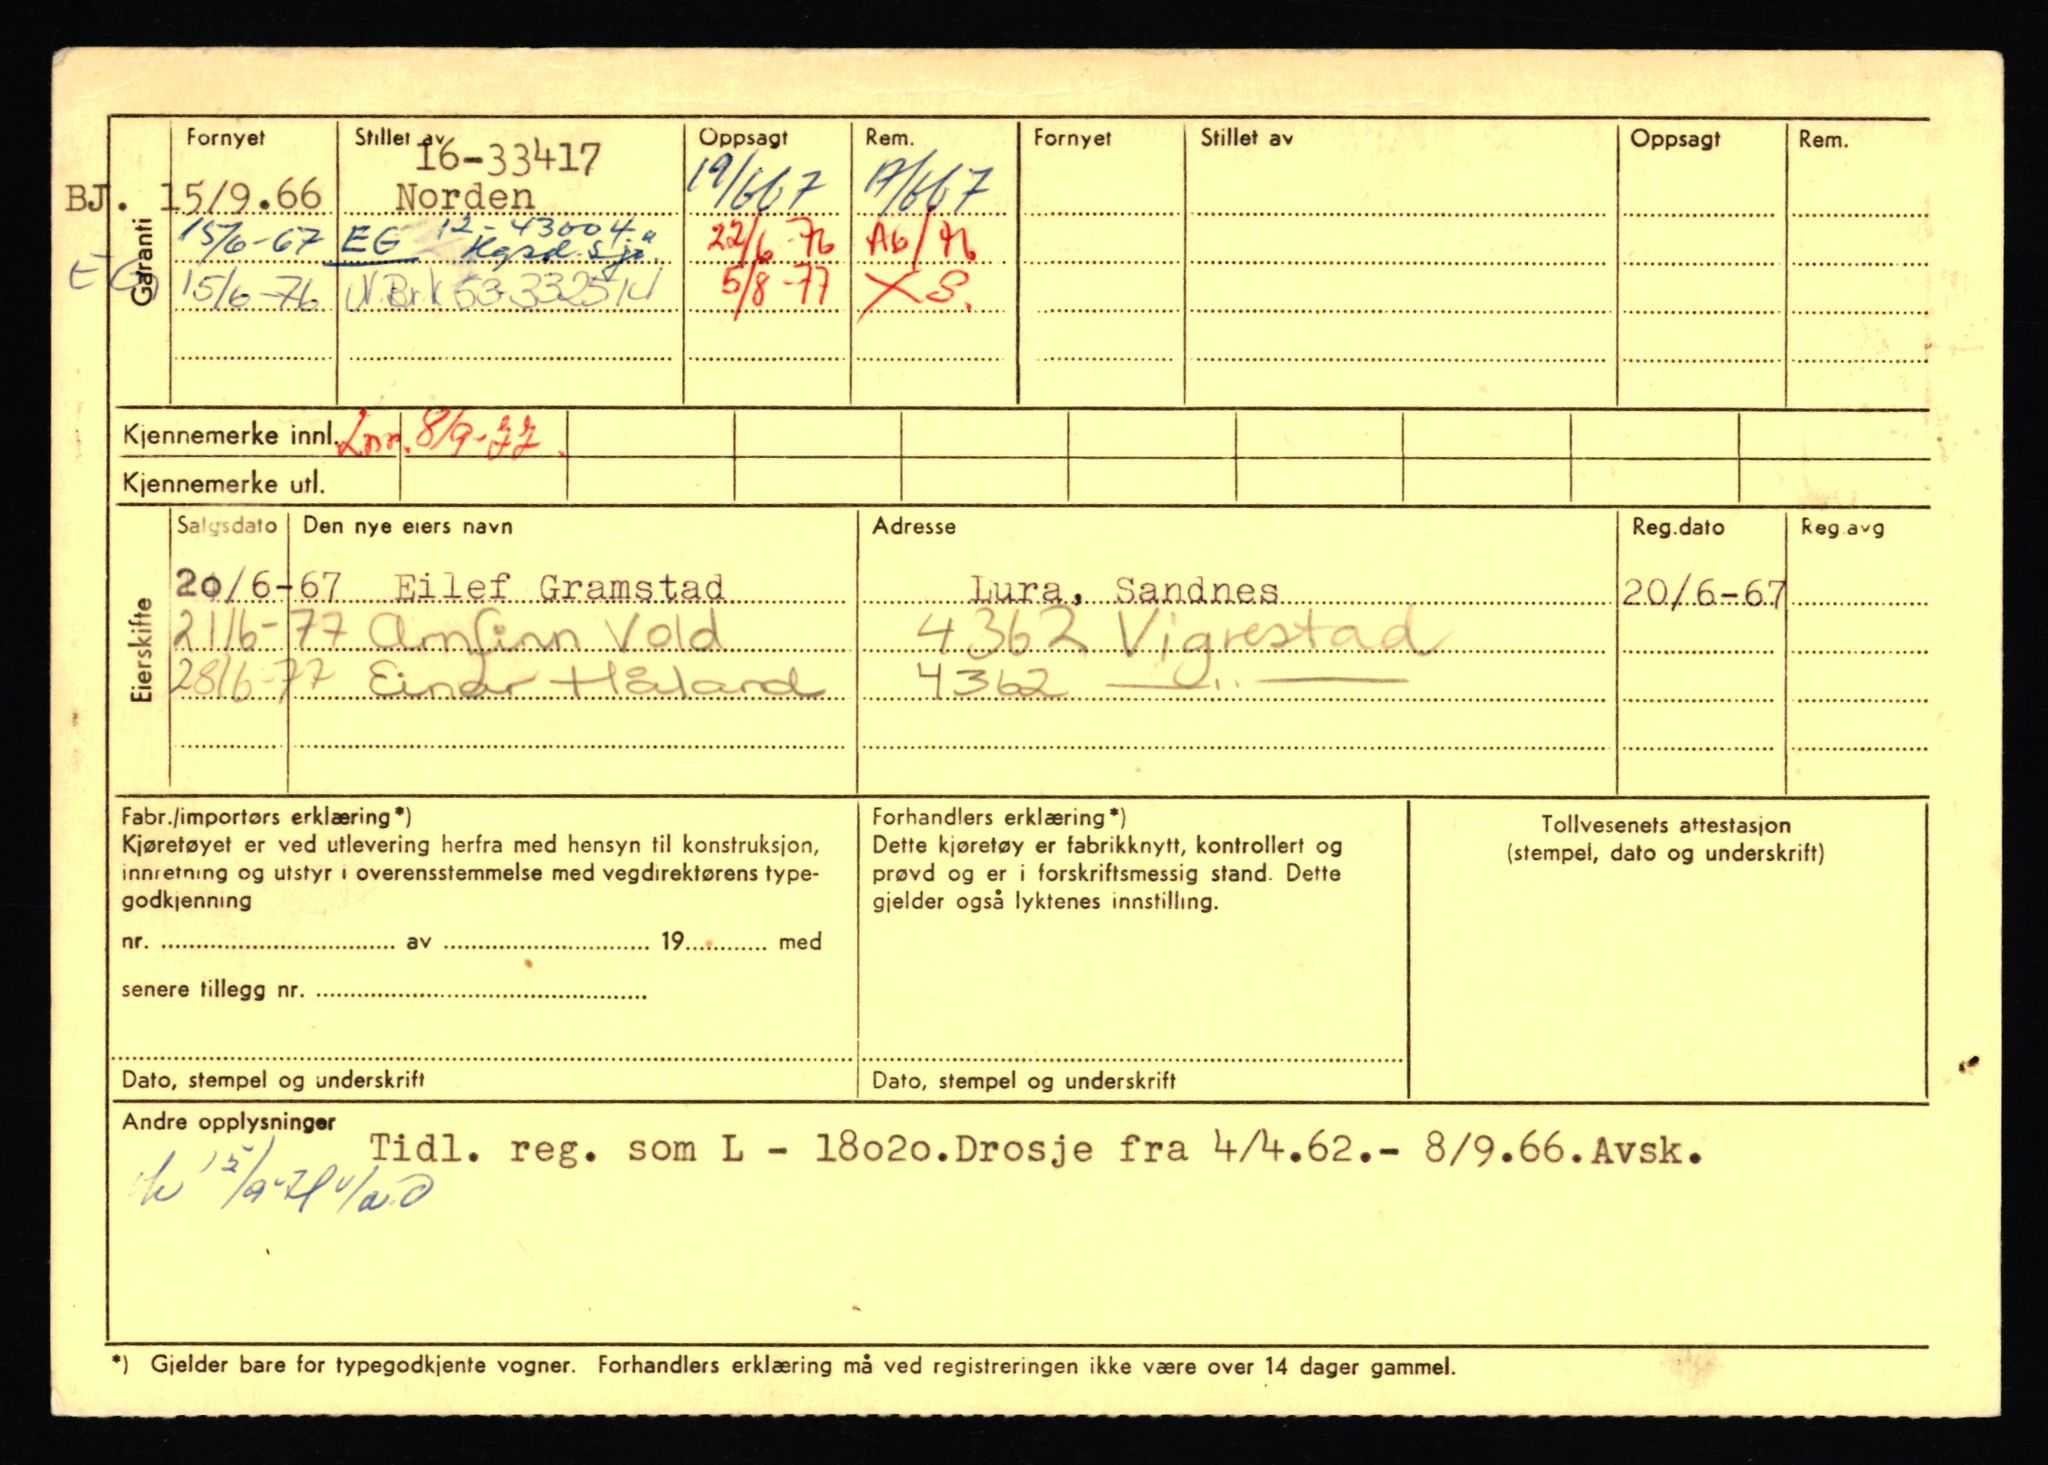 Fornyet Stillet av Oppsagt Rem. Fornyet Stillet av Oppsagt Rem.
16-33417
BJ. 15/9.66 Norden 19/667 19/667
15/6-67 EG 12-43004 22/6-76
EG 15/6-76 N.Br.K 53-332514 5/8-77 X S.
Garanti
Kjennemerke innl. Lnr. 8/9-77.
Kjennemerke utl.
Salgsdato Den nye eiers navn Adresse Reg.dato Reg.avg
20/6-67 Eilef Gramstad Lura, Sandnes 20/6-67
21/6-77 Arnfinn Vold 4362 Vigrestad
28/6-77 Einar Håland 4362 —"—
Eierskifte
Fabr./importørs erklæring*)
Kjøretøyet er ved utlevering herfra med hensyn til konstruksjon,
innretning og utstyr i overensstemmelse med vegdirektørens type-
godkjenning
nr. ........ av ........ 19........ med
senere tillegg nr. ........
Dato, stempel og underskrift
Forhandlers erklæring*)
Dette kjøretøy er fabrikknytt, kontrollert og
prøvd og er i forskriftsmessig stand. Dette
gjelder også lyktenes innstilling.
Dato, stempel og underskrift
Tollvesenets attestasjon
(stempel, dato og underskrift)
Andre opplysninger
Tidl. reg. som L - 18020.Drosje fra 4/4.62.- 8/9.66.Avsk.
*) Gjelder bare for typegodkjente vogner. Forhandlers erklæring må ved registreringen ikke være over 14 dager gammel.